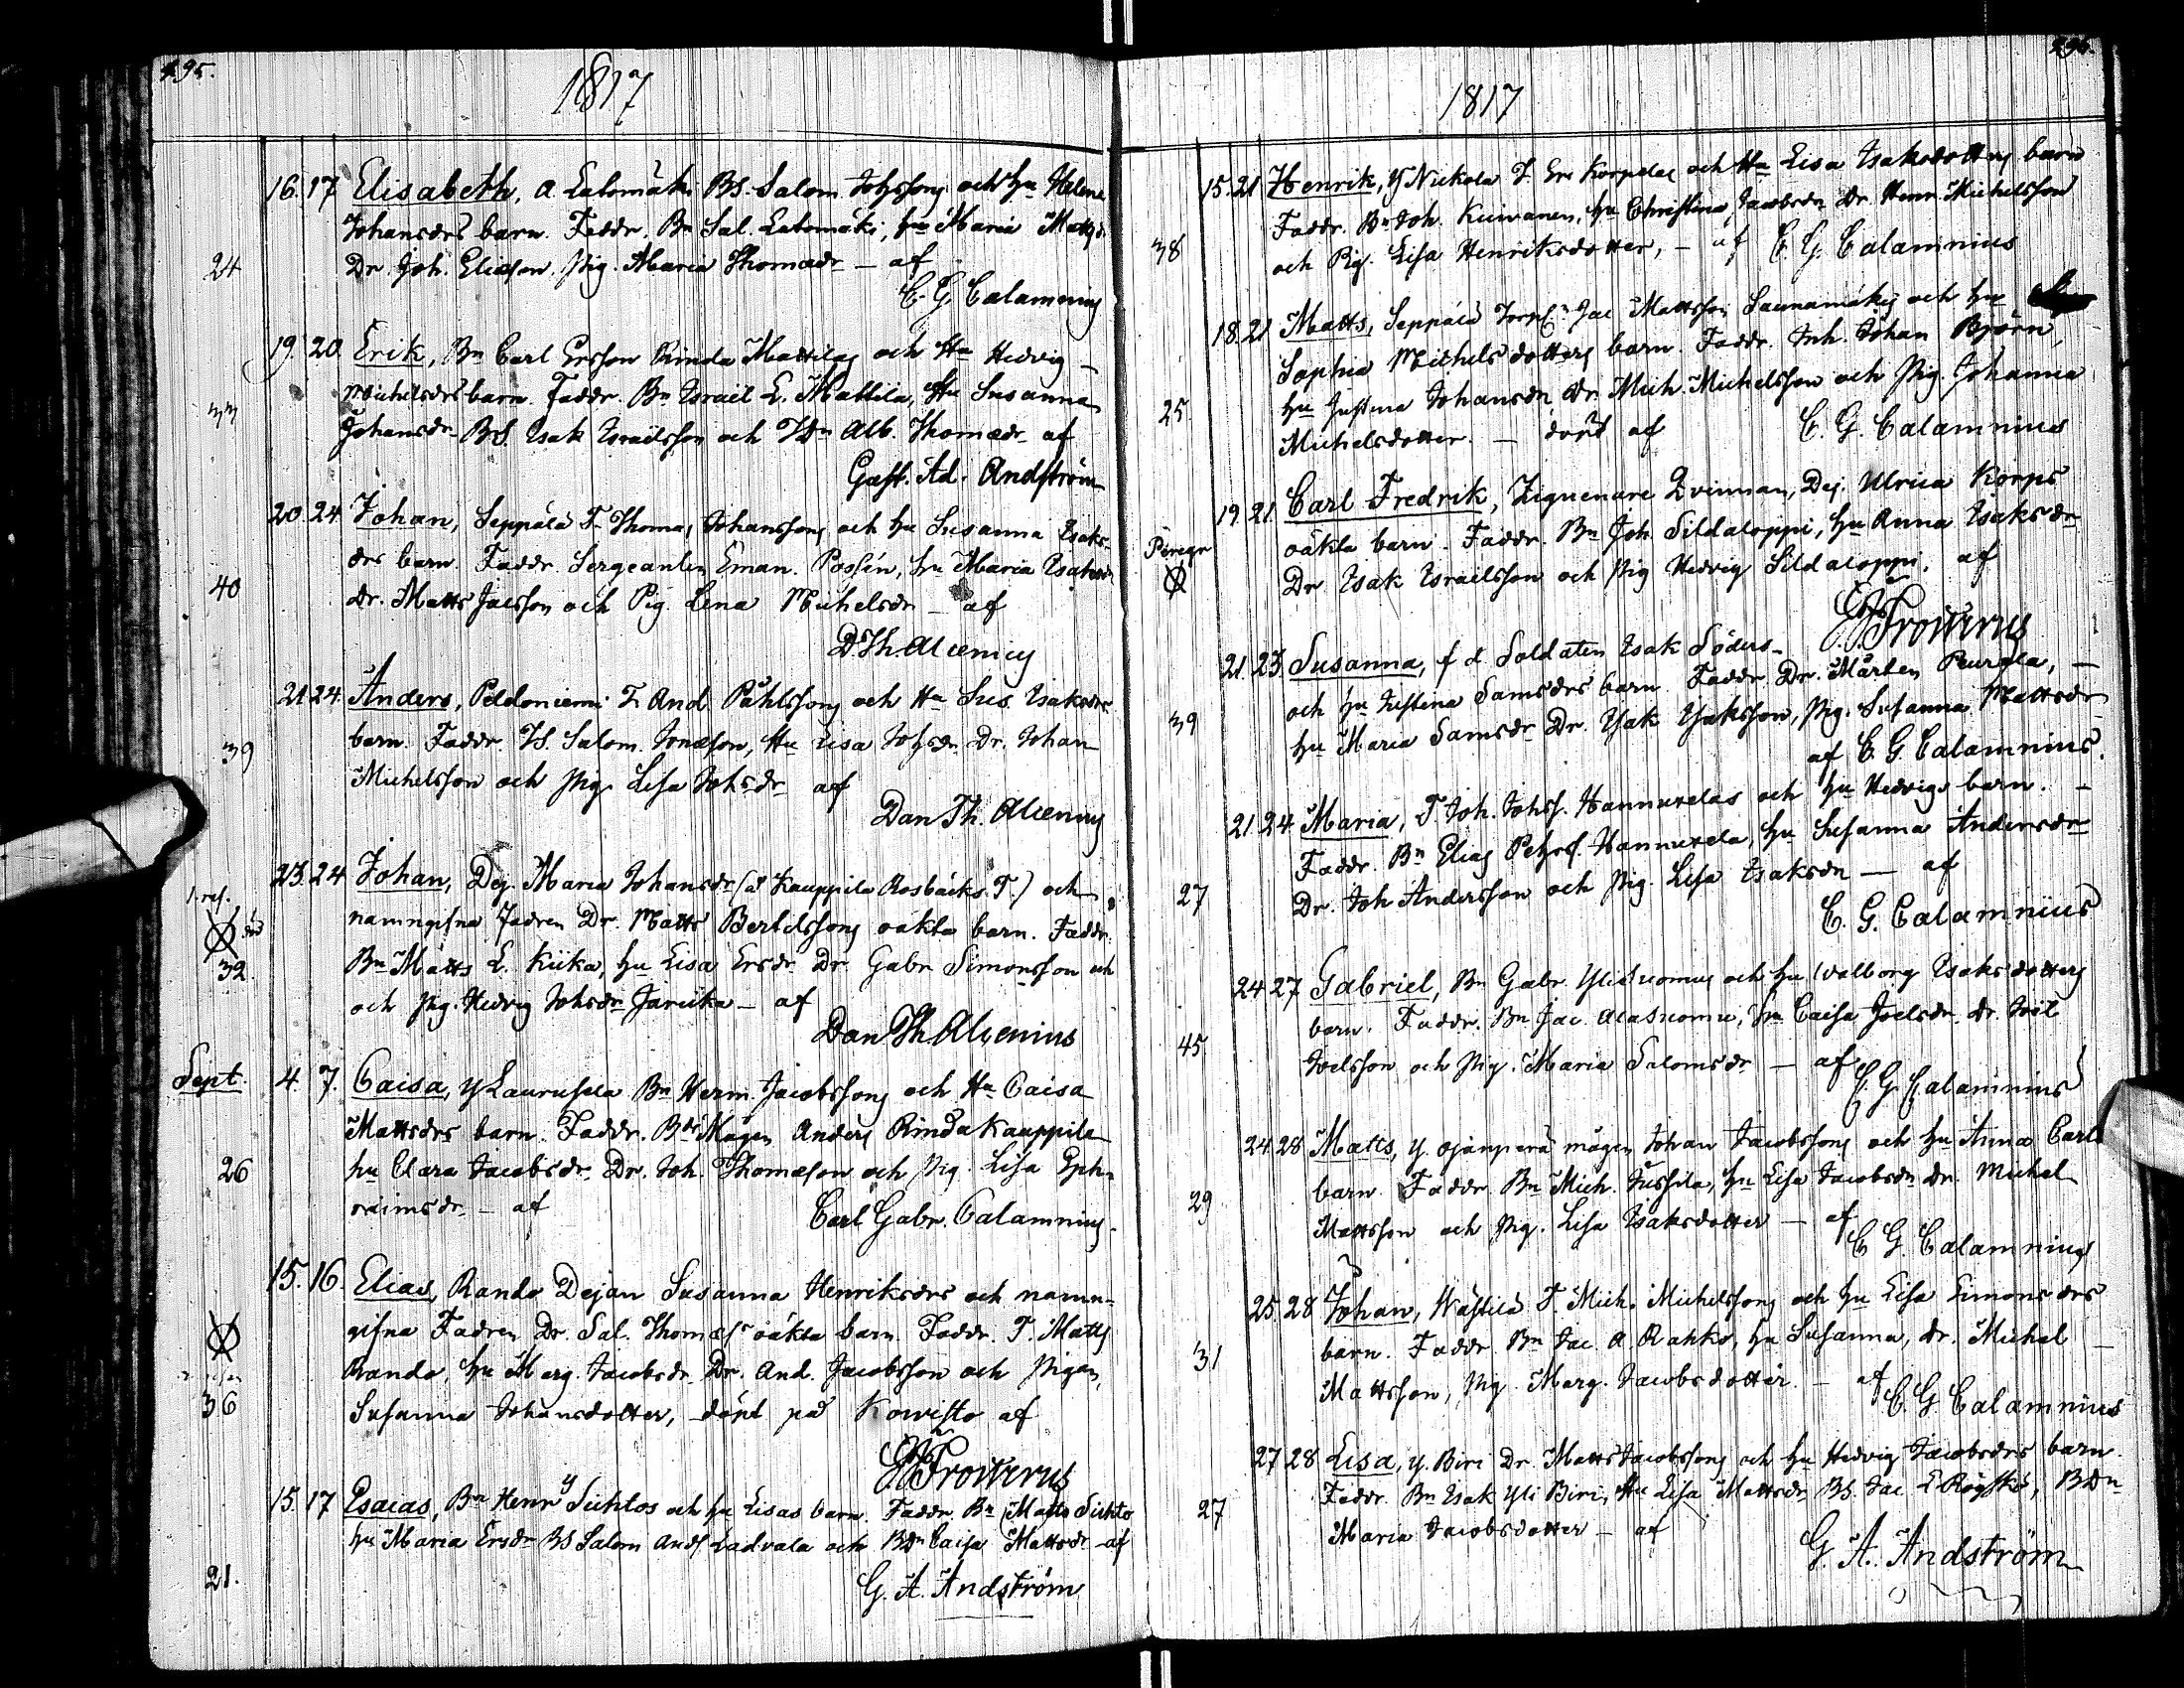 495.
1817
16. 17 Elisabeth, a. Latomäki BS. Salom. Johssons och hu Helena
Johansdrs barn. Faddr. Bn Sal. Latomäki, hu Maria Mattsdr
24 Dr. Joh. Eliæson. Pig. Maria Thomædr – af
C. G. Calamnius
19. 20. Erik, Bn Carl Ersson Rinda Mattilas och Hu Hedvig
Michelsdrs barn. Faddr. Bn Israil L. Mattila, Hu Susanna
33 Johansdr. BS. Isak Israilsson och Alb. Thomædr af
Gust. Ad. Andström
20. 24. Johan, Seppälä T. Thomas Johanssons och hu Susanna Isaks-
drs barn. Faddr. Sergeanten Eman. Possén, hu Maria Isaksdr
40 Dr. Matts Jacsson och Pig. Lena Michelsdr – af
D. Th. Alcenius
21. 24. Anders, Peldoniemi T. And. Påhlssons och Hu Sus. Isaksdrs
barn. Faddr. TS. Salom. Jonæson, Hu Lisa Johsdr. Dr. Johan
39 Michelsson och Pig. Lisa Johsdr af
Dan. Th. Alcenius
23. 24 Johan, Dej. Maria Johansdr (å Kauppila Rosbäcks T.) och
namngifna Fadren Dr. Matts Bertilssons oäkta barn. Faddr.
32. Bn Matts L. Kiika, hu Lisa Ersdr. Dr. Gabr. Simonsson och
och Pig. Hedvig Johsdr Jariika – af
Dan. Th. Alcenius
Sept. 4. 7. Caisa, Y Laurusela Bn Herm. Jacobssons och Hu Caisa
Mattsdrs barn. Faddr. Bde Mågen Anders Rinda Kauppila
26 hu Clara Jacobsdr. Dr. Joh. Thomæson och Pig. Lisa Eph-
raimsdr – af
Carl Gabr. Calamnius.
15. 16. Elias, Rando Dejan Susanna Henriksdrs och namn-
gifna Fadren Dr. Sal. Thomæs oäkta barn. Faddr. T. Matts
Rando, hu Marg. Jacobsdr. Dr. And. Jacobsson och Pigan
36 Susanna Johansdotter, – döpt på Kowisto af
Frosterus
15. 17 Esaias, Bn Henr Y Sichtos och hu Lisas barn. Faddr. Bn Matts Sichto
hu Maria Ersdr BS Salom Ands Ladvala och BDr Caisa Mattsdr – af
21. G. A. Andström
496.
1817
15. 21 Henrik, Y Nickola T. Er. Korpelas och Hu Lisa Isaksdotters barn
Faddr. Bn Joh. Kuivanen, hu Christina Jacobsdr Dr. Henr. Michelsson
38 och Pig. Lisa Henriksdotter, – af C. G. Calamnius
18. 21 Matts, Seppälä Torpn Jac Mattsson Saunamäkis och hu
Sophia Michelsdotters barn. Faddr. Inh. Johan Björn,
25. hu Justina Johansdr Dr. Mich. Michelsson och Pig. Johanna
Michelsdotter. – döpt af C. G. Calamnius
19. 21 Carl Fredrik, Ziguenare Qvinnan, Dej. Ulrica Korps
Peregr oäkta barn. Faddr. Bn Joh. Sildaloppi, hu Anna Isaksdr
Dr Isak Israilsson och Pig Hedvig Sildaloppi. af
Frosterus
21. 23. Susanna, f d Soldaten Isak Söders-
och hu Justina Samsdrs barn. Faddr. Dr. Mårten Peurala, –
39 hu Maria Samsdr. Dr. Isak Isaksson, Pig. Susanna Mattsdr
af C. G. Calamnius.
21 24 Maria, T Joh. Johss. Hannuxelas och hu Hedvigs barn. –
Faddr. Bn Elias Petrss. Hannuxela, hu Susanna Andersdr
27 Dr. Joh Andersson och Pig. Lisa Isaksdr – af
C. G. Calamnius
24 27 Gabriel, Bn Gabr. Ylisuomus och hu Walborg Isaksdotters
barn. Faddr. Bn Jac. Alasuomu, hu Caisa Joelsdr. Dr. Joël
45 Joelsson och Pig. Maria Salomsdr – af
C. G. Calamnius
24. 28 Matts, Y. Ojanperä mågen Johan Jacobssons och hu Anna Carls
barn. Faddr. Bn Mich. Jussila, hu Lisa Jacobsdr Dr. Michel
29 Mattsson och Pig. Lisa Isaksdotter – af
C. G. Calamnius
25. 28 Johan, Wästilä T. Mich. Michelssons och hu Lisa Simonsdrs
barn. Faddr. Bn Jac. A. Rahko, hu Susanna, Dr. Michel –
31 Mattsson, Pig. Marg. Jacobsdotter – af
C. G. Calamnius
27 28 Lisa, Y. Biri Dr. Matts Jacobssons och hu Hedvig Jacobsdrs barn.
Faddr. Bn Isak Yli Biri, Hu Lisa Mattsdr. BS. Jac. L Röyskö, BDr
27 Maria Jacobsdotter – af
G. A. Andström